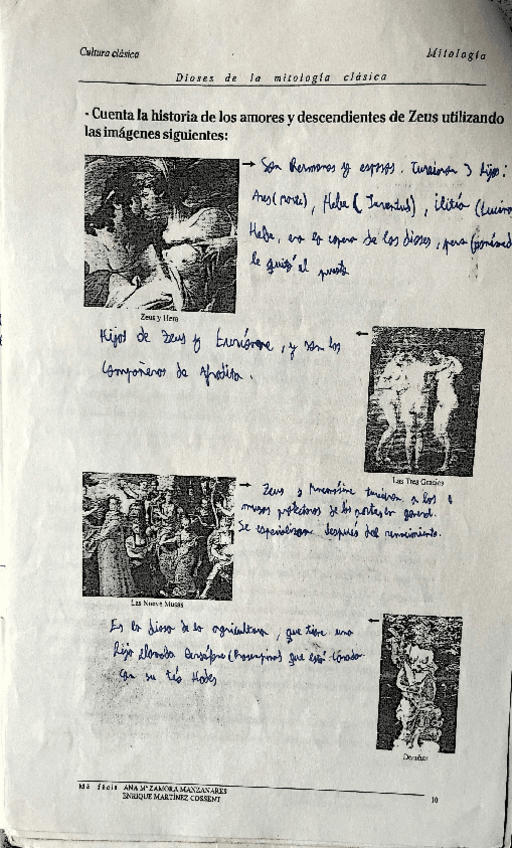 Cultura clásica
Mitología
Dioses de la mitología clásica
- Cuenta la historia de los amores y descendientes de Zeus utilizando
las imágenes siguientes:
→ Son hermanos y esposos. Tuvieron 3 hijos:
Ares (Marte), Hebe (Juventud), Ilitía (Lucina
Hebe, era la copera de los dioses, pero
le quitó el puesto
Zeus y Hera
Hijas de Zeus y Eurínome, y son las ←
compañeras de Afrodita.
Las Tres Gracias
→ Zeus y Mnemósine tuvieron a las
musas protectoras de las artes en general.
Se especializan después del renacimiento.
Las Nueve Musas
Es la diosa de la agricultura, que tiene una ←
hija llamada Perséfone (Proserpina) que está casada
con su tío Hades
Deméter
ANA Mª ZAMORA MANZANARES
ENRIQUE MARTÍNEZ COSSENT
10